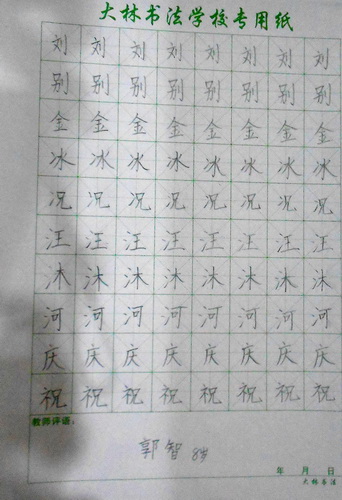 大林书法学校专用纸
刘 刘 刘 刘 刘 刘 刘 刘
别 别 别 别 别 别 别 别
金 金 金 金 金 金 金 金
冰 冰 冰 冰 冰 冰 冰 冰
况 况 况 况 况 况 况 况
汪 汪 汪 汪 汪 汪 汪 汪
沐 沐 沐 沐 沐 沐 沐 沐
河 河 河 河 河 河 河 河
庆 庆 庆 庆 庆 庆 庆 庆
祝 祝 祝 祝 祝 祝 祝 祝
教师评语：
郭智 8岁
年 月 日
大林书法